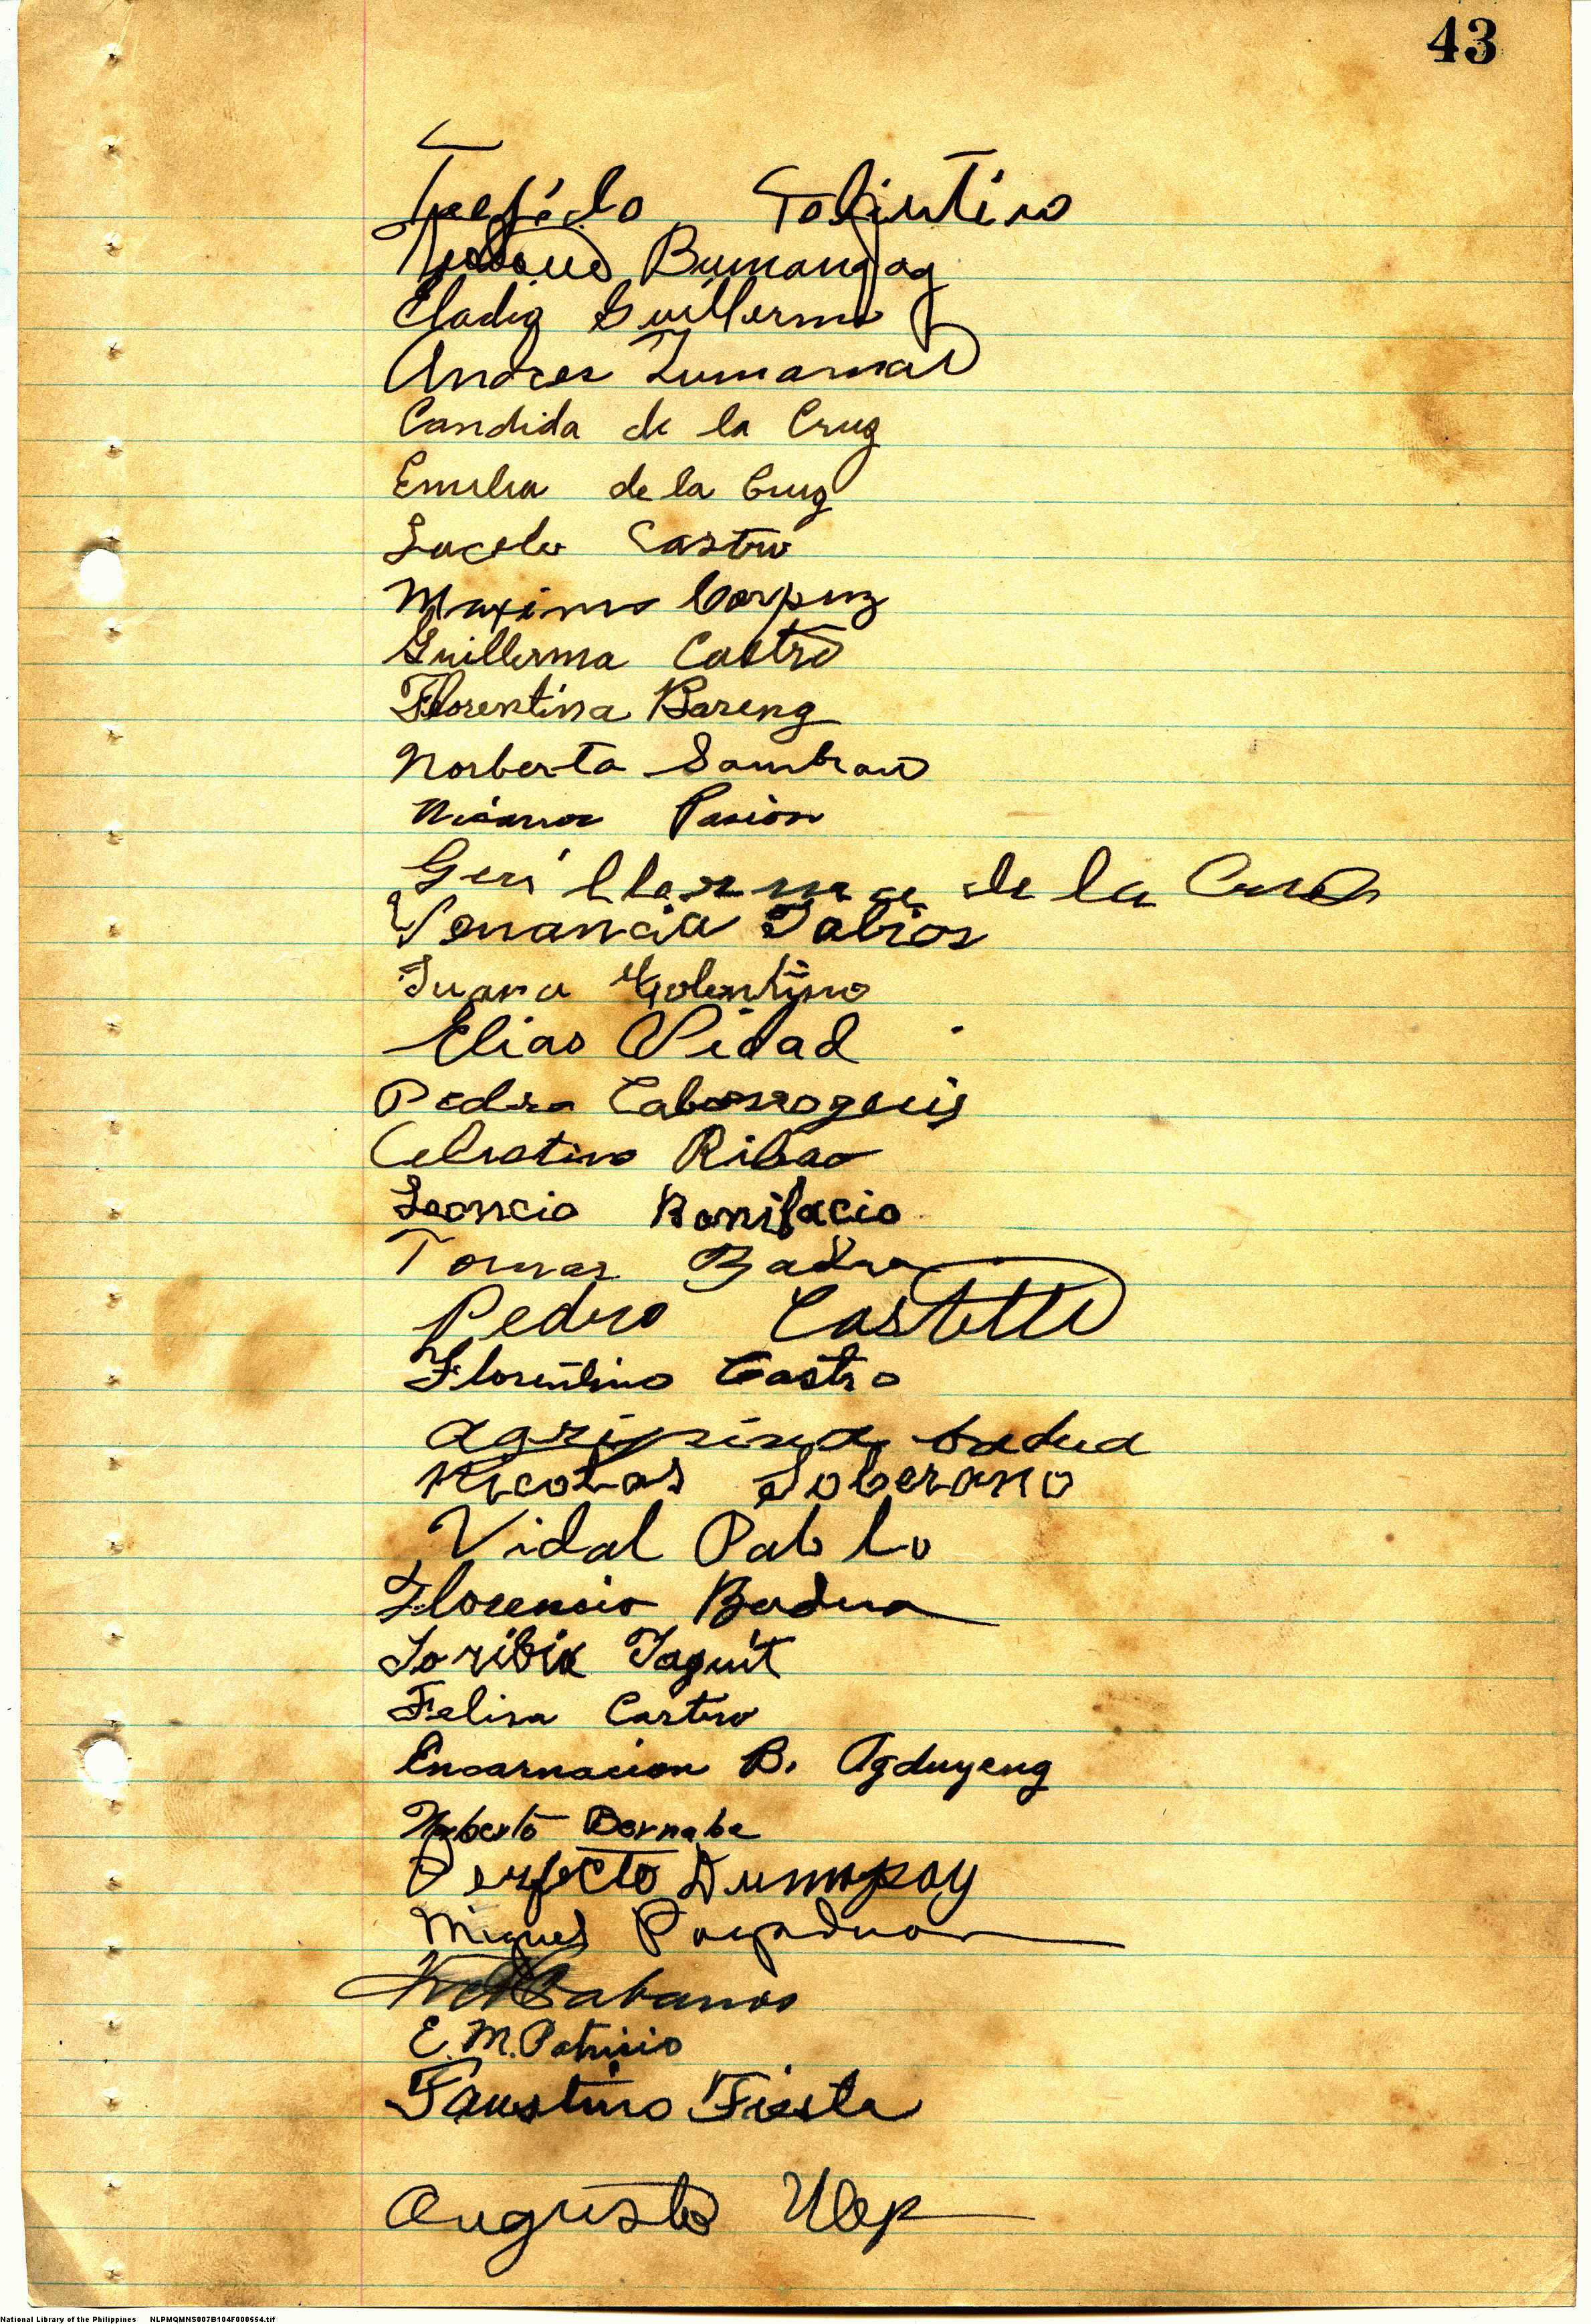 43
Bumangag
Eladio Guillermo
Andres Lumamad
Candida de la Cruz
Emelia de la Cruz
Castro
Maximo Corpuz
Guillerma Castro
Florentina Bareng
Norberta Sambrano
Nicanor Pasion
de la Cruz
Venancia Tabios
Juana Tolentino
Elias Pidad
Pedro
Celestino Ribao
Leoncio Bonifacio
Tomas Badua
Pedro
Florentino Castro
Agripina badua
Nicolas Soberano
Vidal Pablo
Florencio Badua
Toribia Taguit
Felisa Castro
Encarnacion B. Agduyeng
Bernabe
Perfecto Dumpay
Miguel Pagadua
Cabanos
E. M. Patricio
Faustino Fiesta
Augusto Ulep
National Library of the Philippines NLPMQMNS007B104F000554.tif